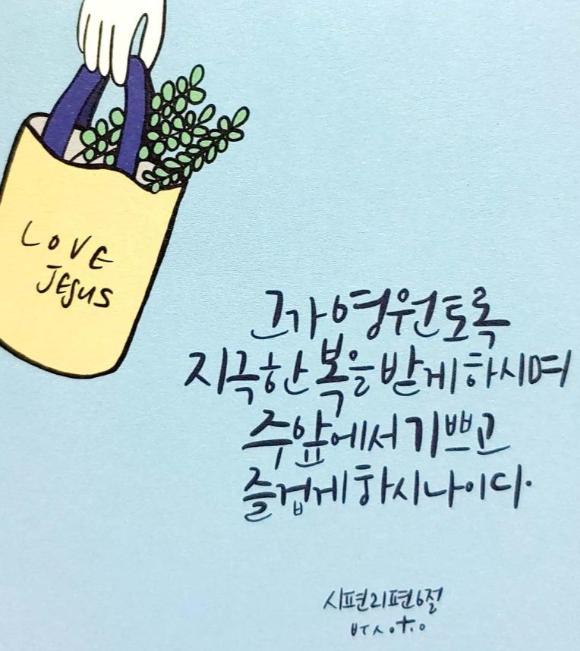 LOVE
JESUS
그가 영원토록
지극한 복을 받게 하시며
주 앞에서 기쁘고
즐겁게 하시나이다.
시편21편6절